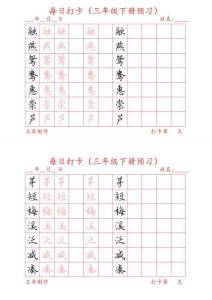 每日打卡（三年级下册预习）
__年__月__日 姓名:____
融 融 融 融 融
燕 燕 燕 燕 燕
鸳 鸳 鸳 鸳 鸳
鸯 鸯 鸯 鸯 鸯
惠 惠 惠 惠 惠
崇 崇 崇 崇 崇
芦 芦 芦 芦 芦
打卡第 天
每日打卡（三年级下册预习）
__年__月__日 姓名:____
芽 芽 芽 芽 芽
短 短 短 短 短
梅 梅 梅 梅 梅
溪 溪 溪 溪 溪
泛 泛 泛 泛 泛
减 减 减 减 减
凑 凑 凑 凑 凑
打卡第 天